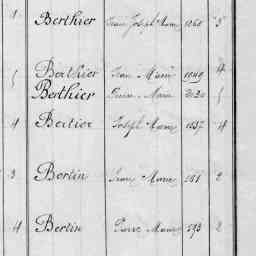 1 Berthier Jean Joseph Marie 1060 5
Berthier Jean Marie 1049 4
Berthier Pierre Marie
4 Bertier Joseph Marie 1037 4
3 Bertin Jean Marie 2
4 Bertin Pierre Marie 593 2